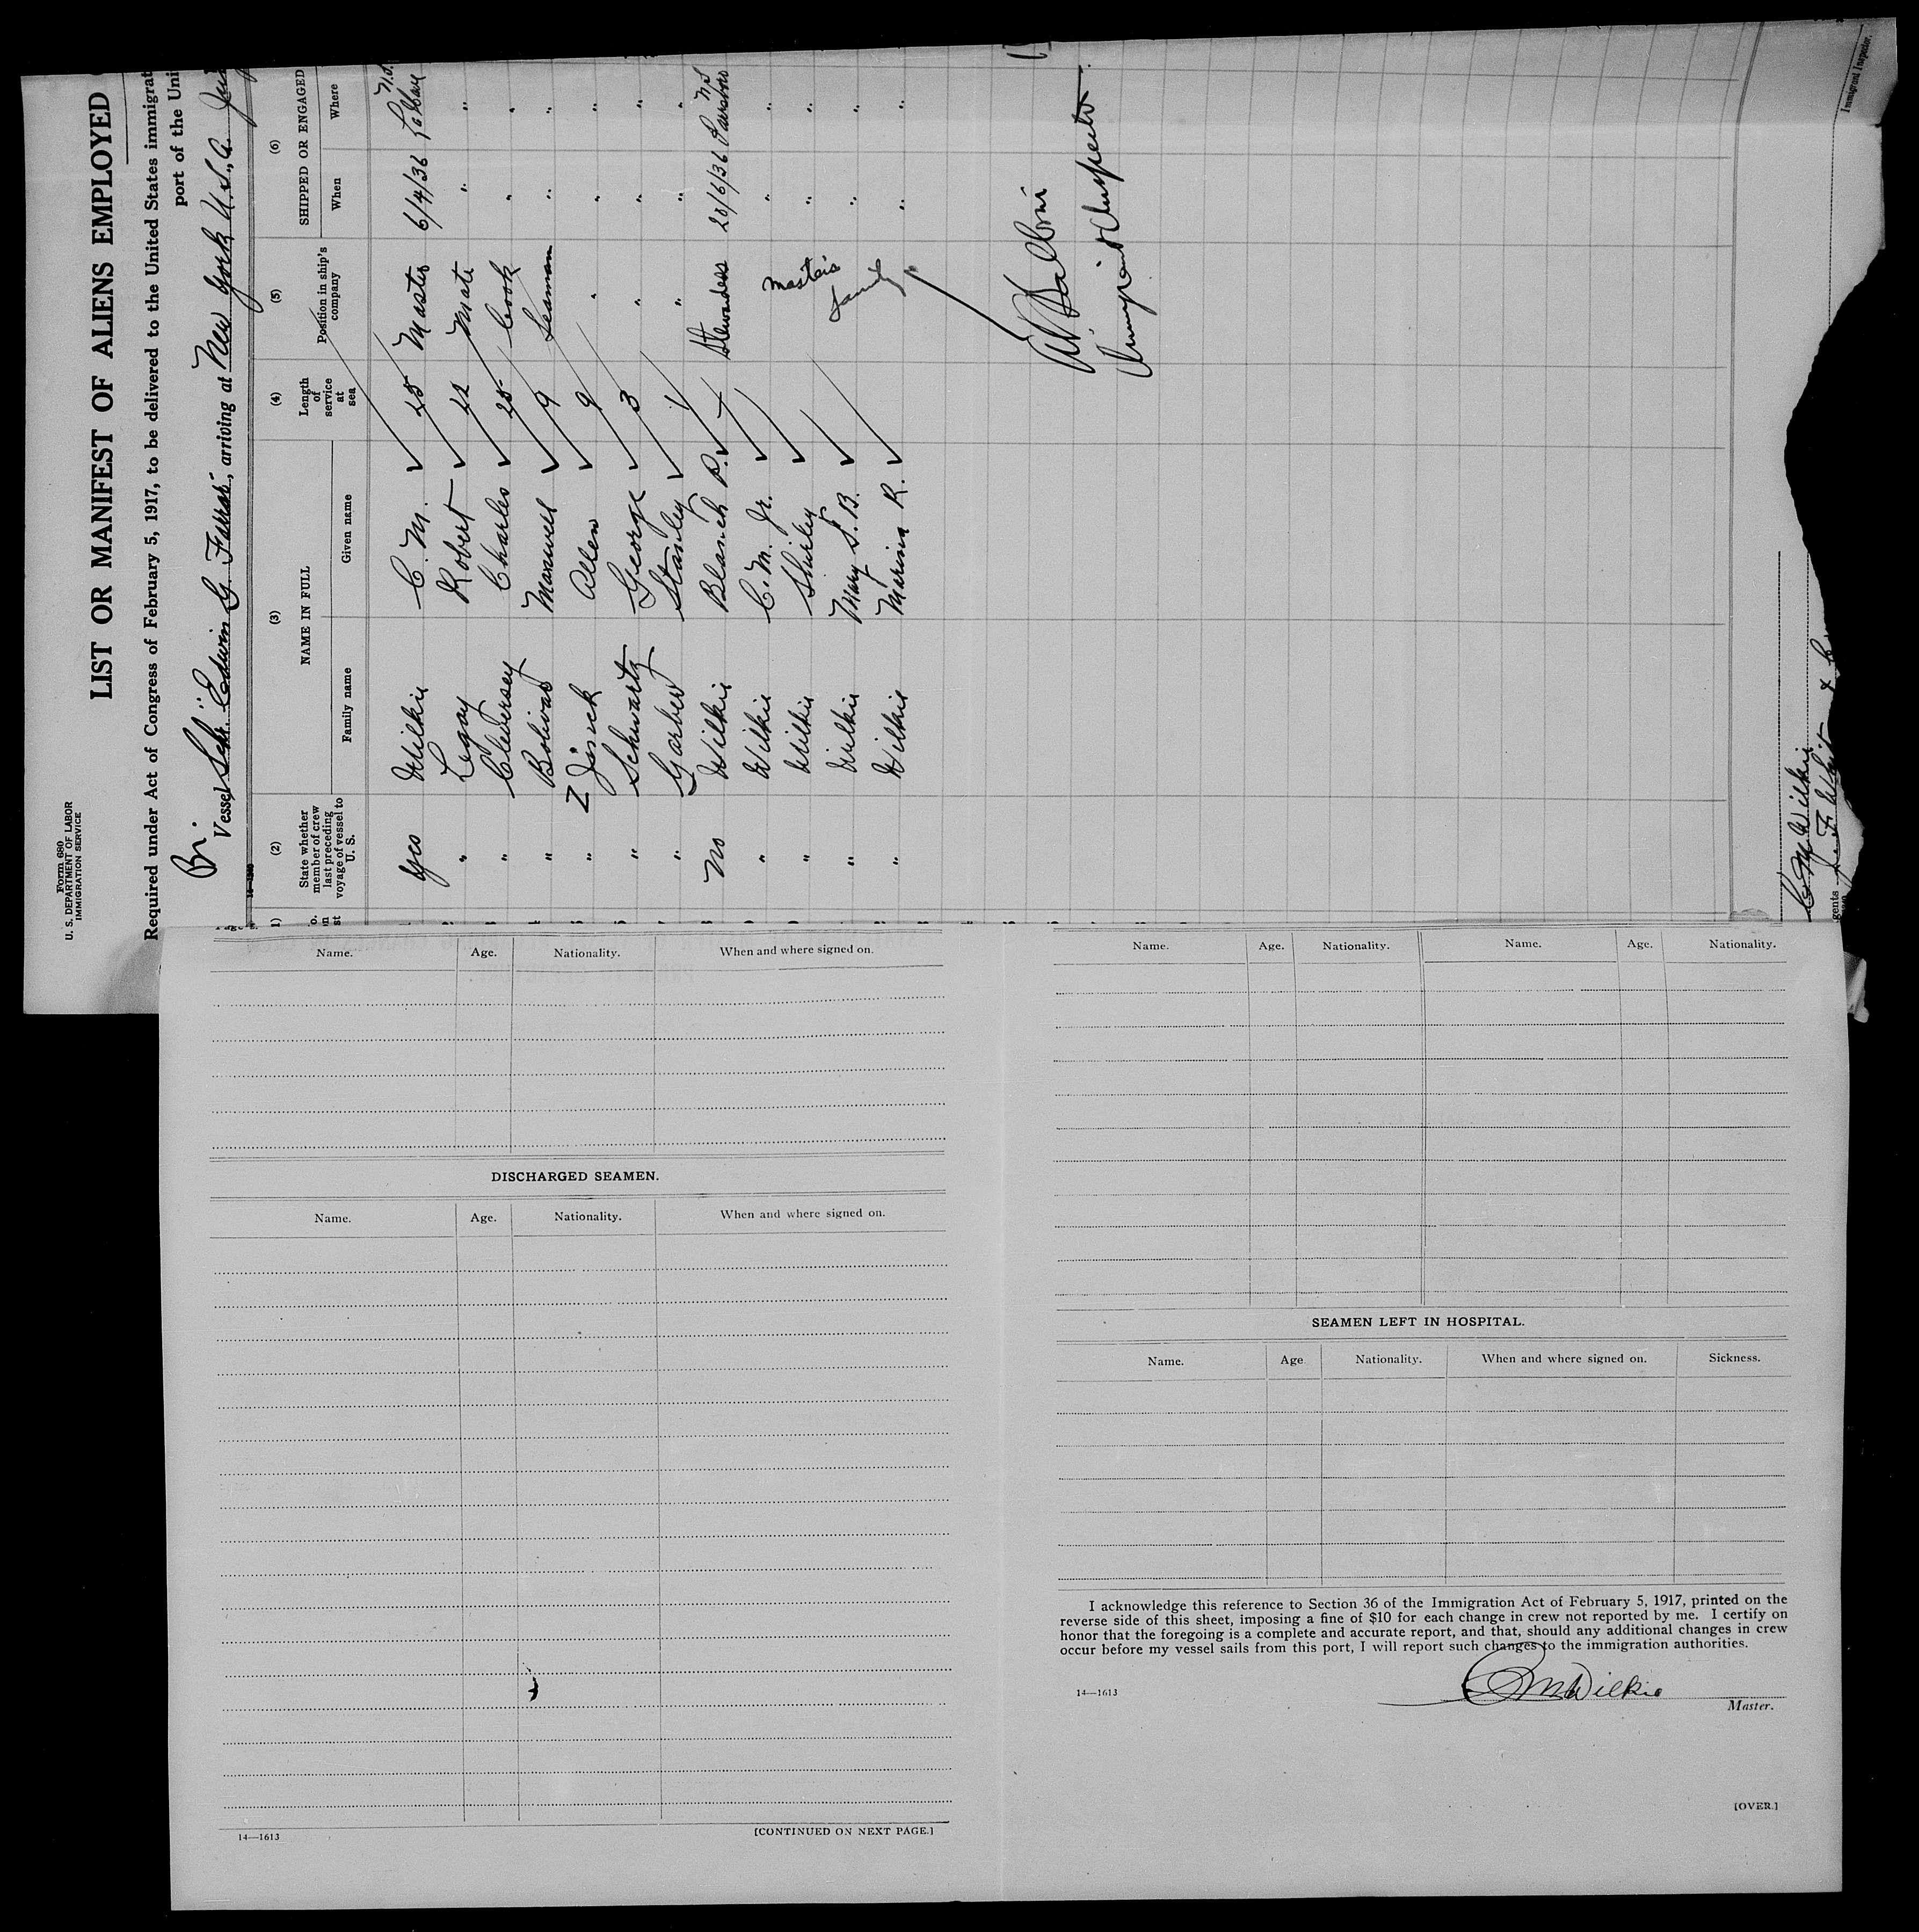 Form 680
U. S. DEPARTMENT OF LABOR
IMMIGRATION SERVICE
LIST OR MANIFEST OF ALIENS EMPLOYED
Required under Act of Congress of February 5, 1917, to be delivered to the United States immigrat
port of the Uni
Br.
Vessel Sch. "Edwin G. Farrar", arriving at New York U.S.A.
(2) (3) (4) (5) (6)
State whether member of crew last preceding voyage of vessel to U. S. NAME IN FULL Length of service at sea Position in ship's company SHIPPED OR ENGAGED
Family name Given name When Where
Yes Wilkie C. M. 25 Master 6/4/36 N.S.
" Legay Robert 22 Mate " "
" Cleversey Charles 25 Cook " "
" Bolivar Maxwell 9 Seaman " "
" Zinck Allen 9 " " "
" Schwartz George 3 " " "
" Garber Stanley 1 " " "
No Wilkie Blanch P. Stewardess 20/6/36 Parrsboro N.S
" Wilkie C. M. Jr. Master's " "
" Wilkie Shirley family " "
" Wilkie Mary S. B. " "
" Wilkie Marina R. " "
Immigrant Inspector
C M Wilkie
gents
Immigrant Inspector.
Name. Age. Nationality. When and where signed on.
DISCHARGED SEAMEN.
Name. Age. Nationality. When and where signed on.
14—1613 [CONTINUED ON NEXT PAGE.]
Name. Age. Nationality. Name. Age. Nationality.
SEAMEN LEFT IN HOSPITAL.
Name. Age Nationality. When and where signed on. Sickness.
I acknowledge this reference to Section 36 of the Immigration Act of February 5, 1917, printed on the
reverse side of this sheet, imposing a fine of $10 for each change in crew not reported by me. I certify on
honor that the foregoing is a complete and accurate report, and that, should any additional changes in crew
occur before my vessel sails from this port, I will report such changes to the immigration authorities.
C M Wilkie
14—1613 Master.
[OVER.]